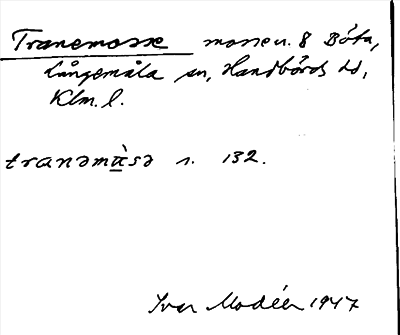 Tranemosse mosse u. 8 Böta,
Långemåla sn, Handbörds hd,
Klm. l.
tranəmùsə s. 132.
Ivar Modéer 1947